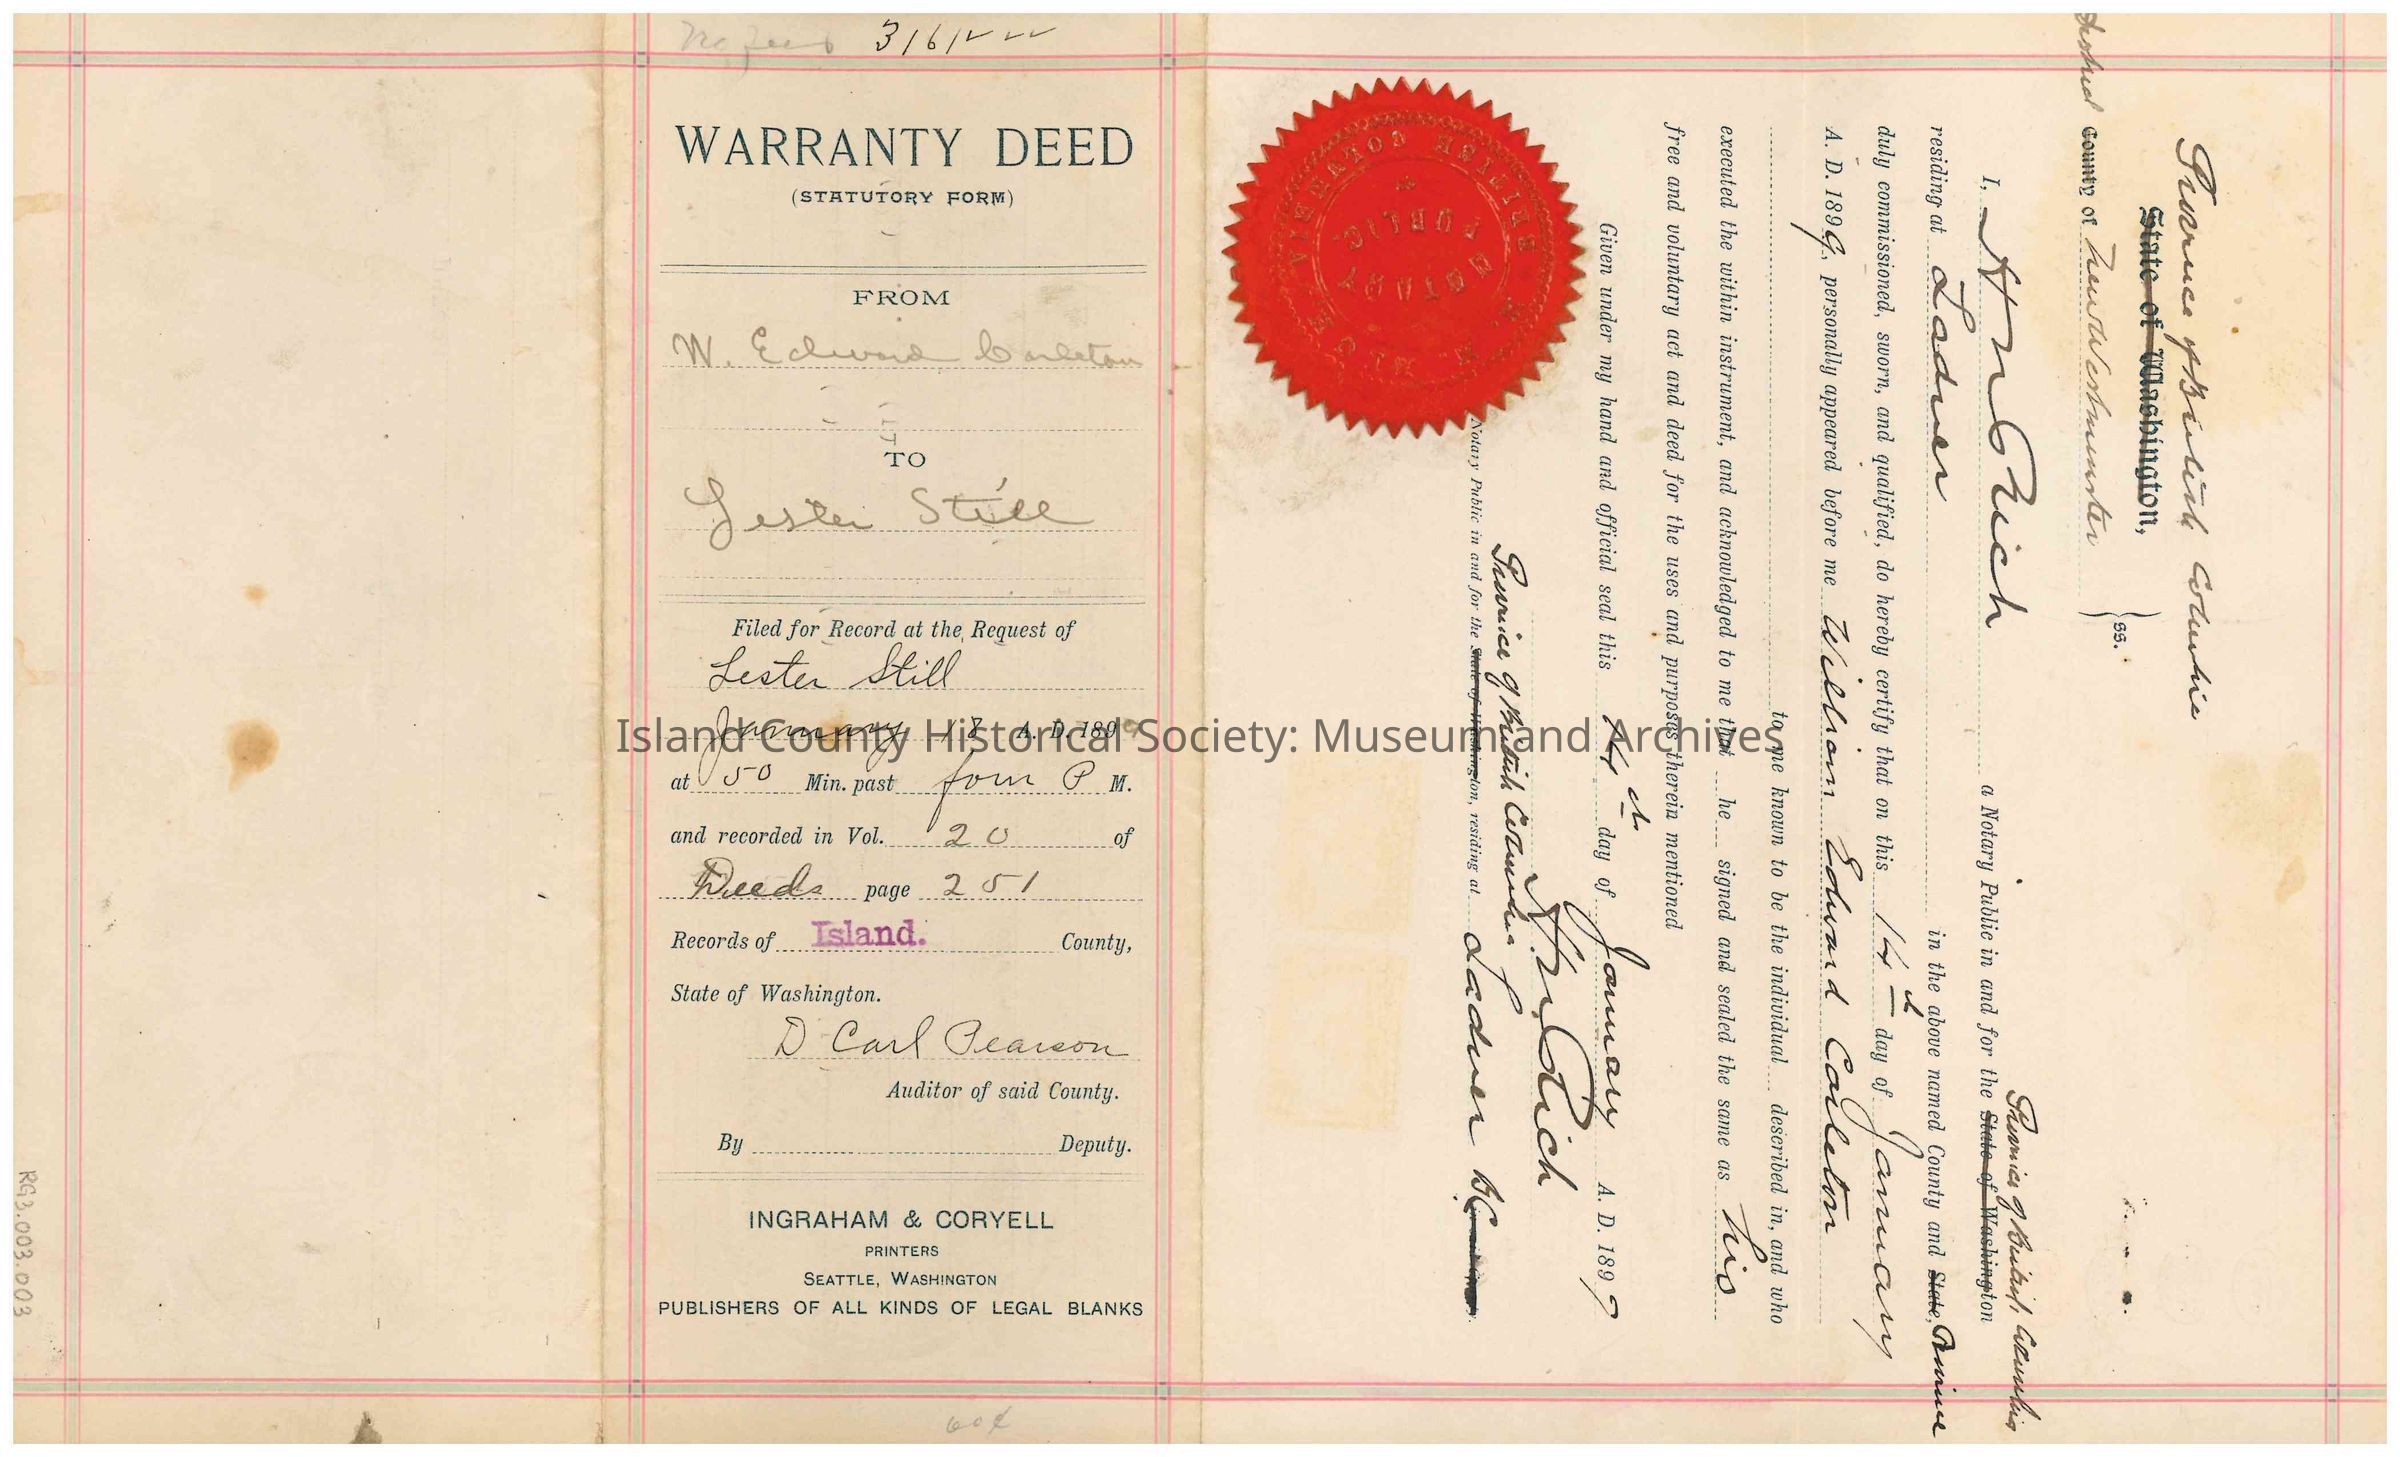 3161
WARRANTY DEED
(STATUTORY FORM)
FROM
W. Edward Carleton
TO
Lester Still
Filed for Record at the Request of
Lester Still
January 18 A. D. 1899
at 50 Min. past four P M.
and recorded in Vol. 20 of
Deeds page 251
Records of Island. County,
State of Washington.
D Carl Pearson
Auditor of said County.
By Deputy.
INGRAHAM & CORYELL
PRINTERS
SEATTLE, WASHINGTON
PUBLISHERS OF ALL KINDS OF LEGAL BLANKS
60¢
RG3.003.003
Province of British Columbia
State of Washington,
County of New Westminster } ss.
Province of British Columbia
I, H N Rich a Notary Public in and for the State of Washington
residing at Ladner in the above named County and State, Province
duly commissioned, sworn, and qualified, do hereby certify that on this 14th day of January
A. D. 1899, personally appeared before me William Edward Carleton
to me known to be the individual described in, and who
executed the within instrument, and acknowledged to me that he signed and sealed the same as his
free and voluntary act and deed for the uses and purposes therein mentioned
Given under my hand and official seal this 14th day of January A. D. 1899
H. N. Rich
Province of British Columbia
Notary Public in and for the State of Washington, residing at Ladner BC
NOTARY PUBLIC
BRITISH COLUMBIA
Island County Historical Society: Museum and Archives